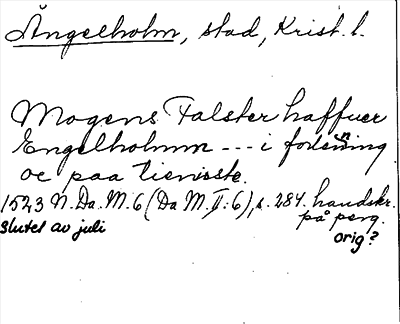 Ängelholm, stad, Krist. l.
Mogens Falster haffuer
Engelholmm --- i forlening
oc paa tieniste.
1523 N. Da. M. 6 (Da M. II: 6), s. 284. handskr.
på perg.
slutet av juli
orig?